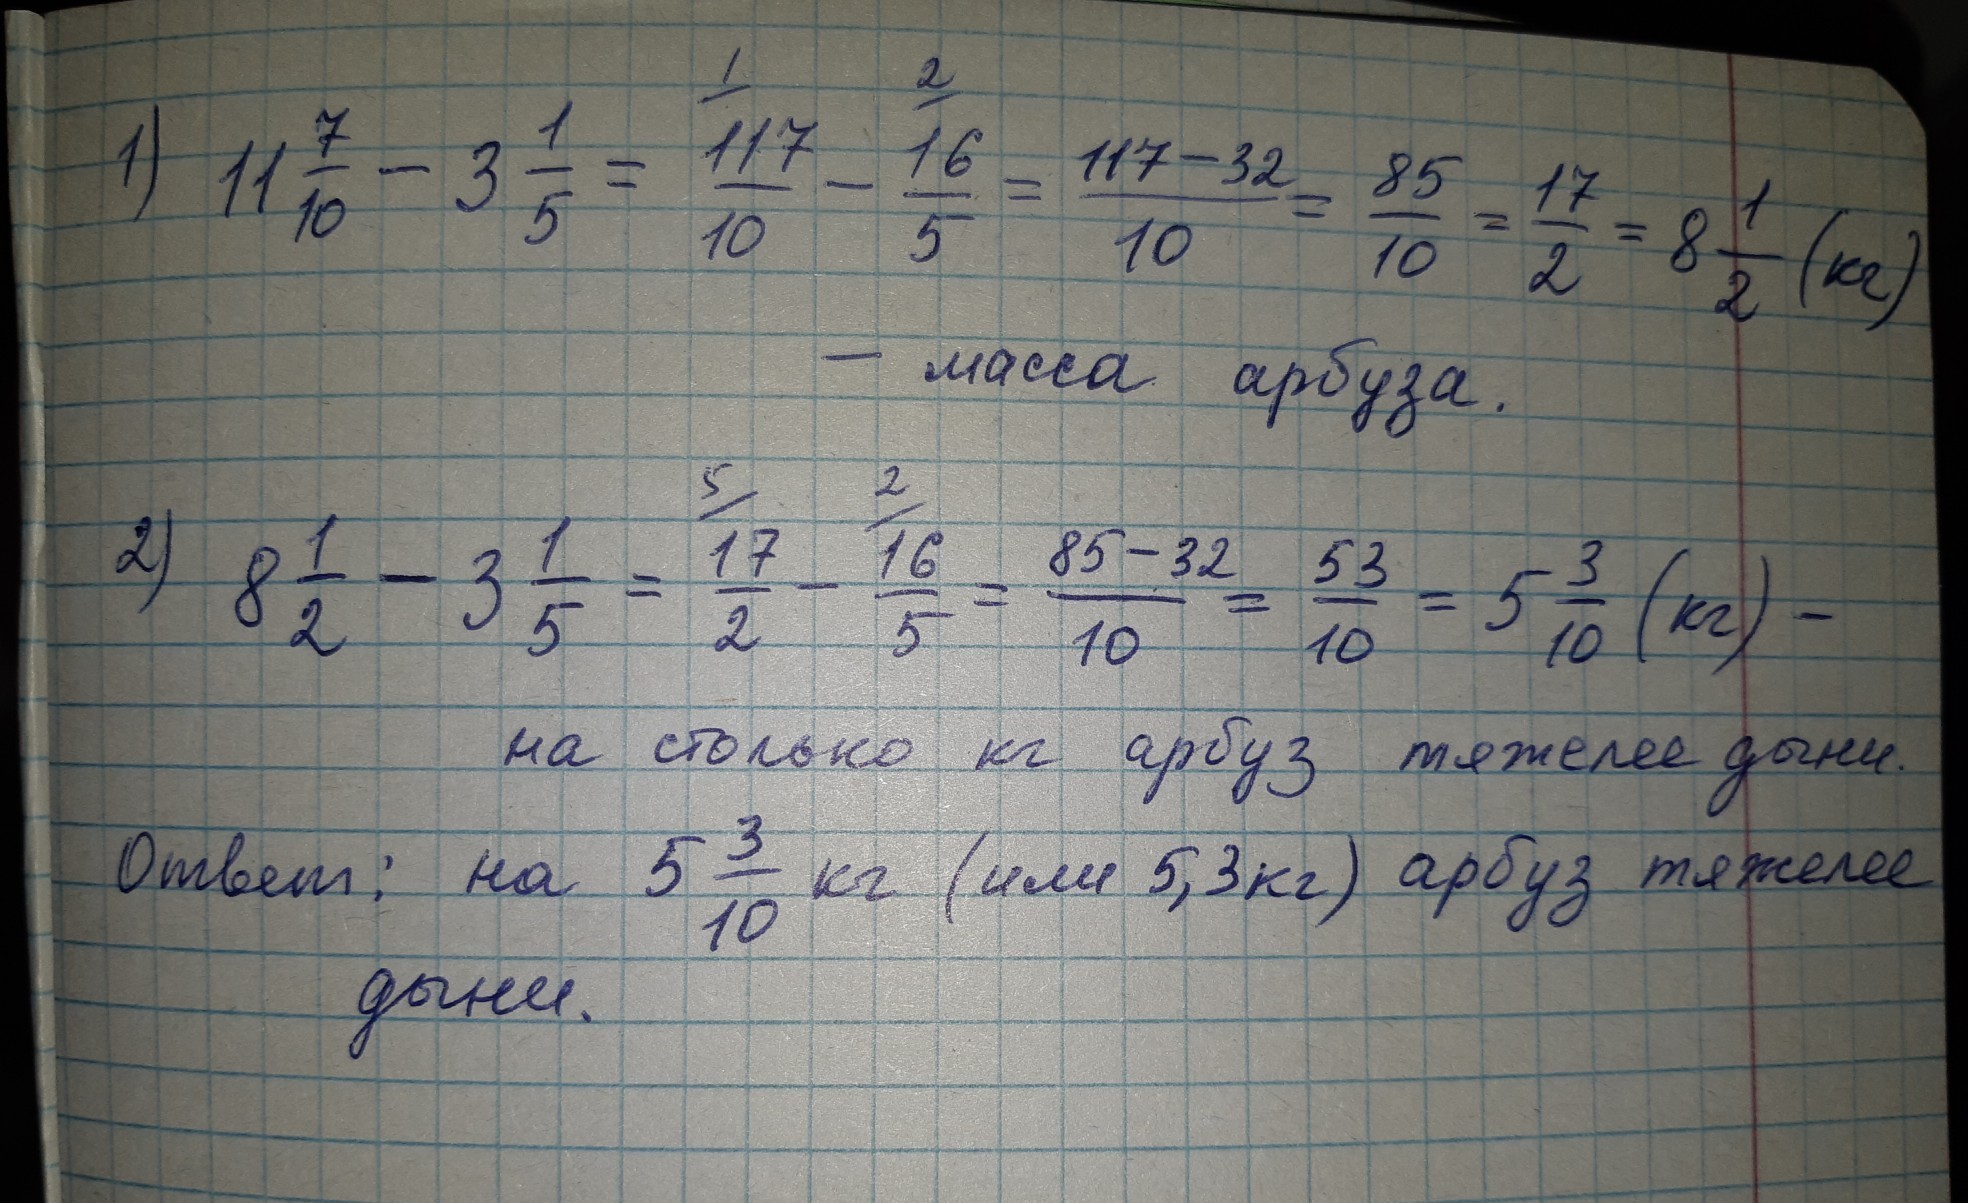 1) 11 7/10 - 3 1/5 = 117/10 (1/ - 16/5 (2/ = (117-32)/10 = 85/10 = 17/2 = 8 1/2 (кг)
— масса арбуза.
2) 8 1/2 - 3 1/5 = 17/2 (5/ - 16/5 (2/ = (85-32)/10 = 53/10 = 5 3/10 (кг) –
на столько кг арбуз тяжелее дыни.
Ответ: на 5 3/10 кг (или 5,3кг) арбуз тяжелее
дыни.